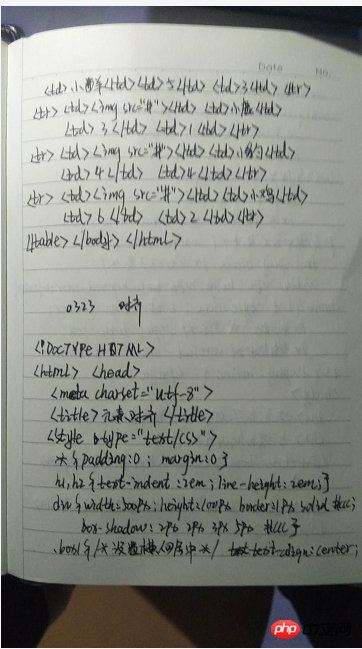 Date No.
<td>小</td><td>5</td> <td>3</td> </tr>
<tr> <td><img src="#"></td><td>小</td>
<td> 3 </td> <td>1</td></tr>
<tr> <td><img src="#"></td><td>小狗</td>
<td>4</td> <td>4</td></tr>
<tr> <td><img src="#"></td><td>小鸡</td>
<td>6</td> <td>2</td></tr>
</table> </body> </html>
0323 对齐
<!DOCTYPE HTML>
<html> <head>
<meta charset="utf-8">
<title>元素对齐</title>
<style type="text/css">
*{padding:0; margin:0}
h1,h2{text-indent:2em; line-height:2em;}
div{width:500px; height:100px border:1px solid #ccc;
box-shadow: 2px 2px 3px 5px #ccc}
.box1{/*设置横向居中*/ text-align:center;
php 中文网